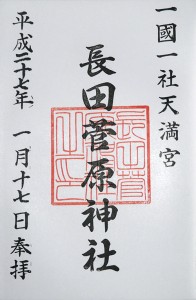 一國一社天満宮
長田菅原神社
平成二十七年 一月十七日奉拝